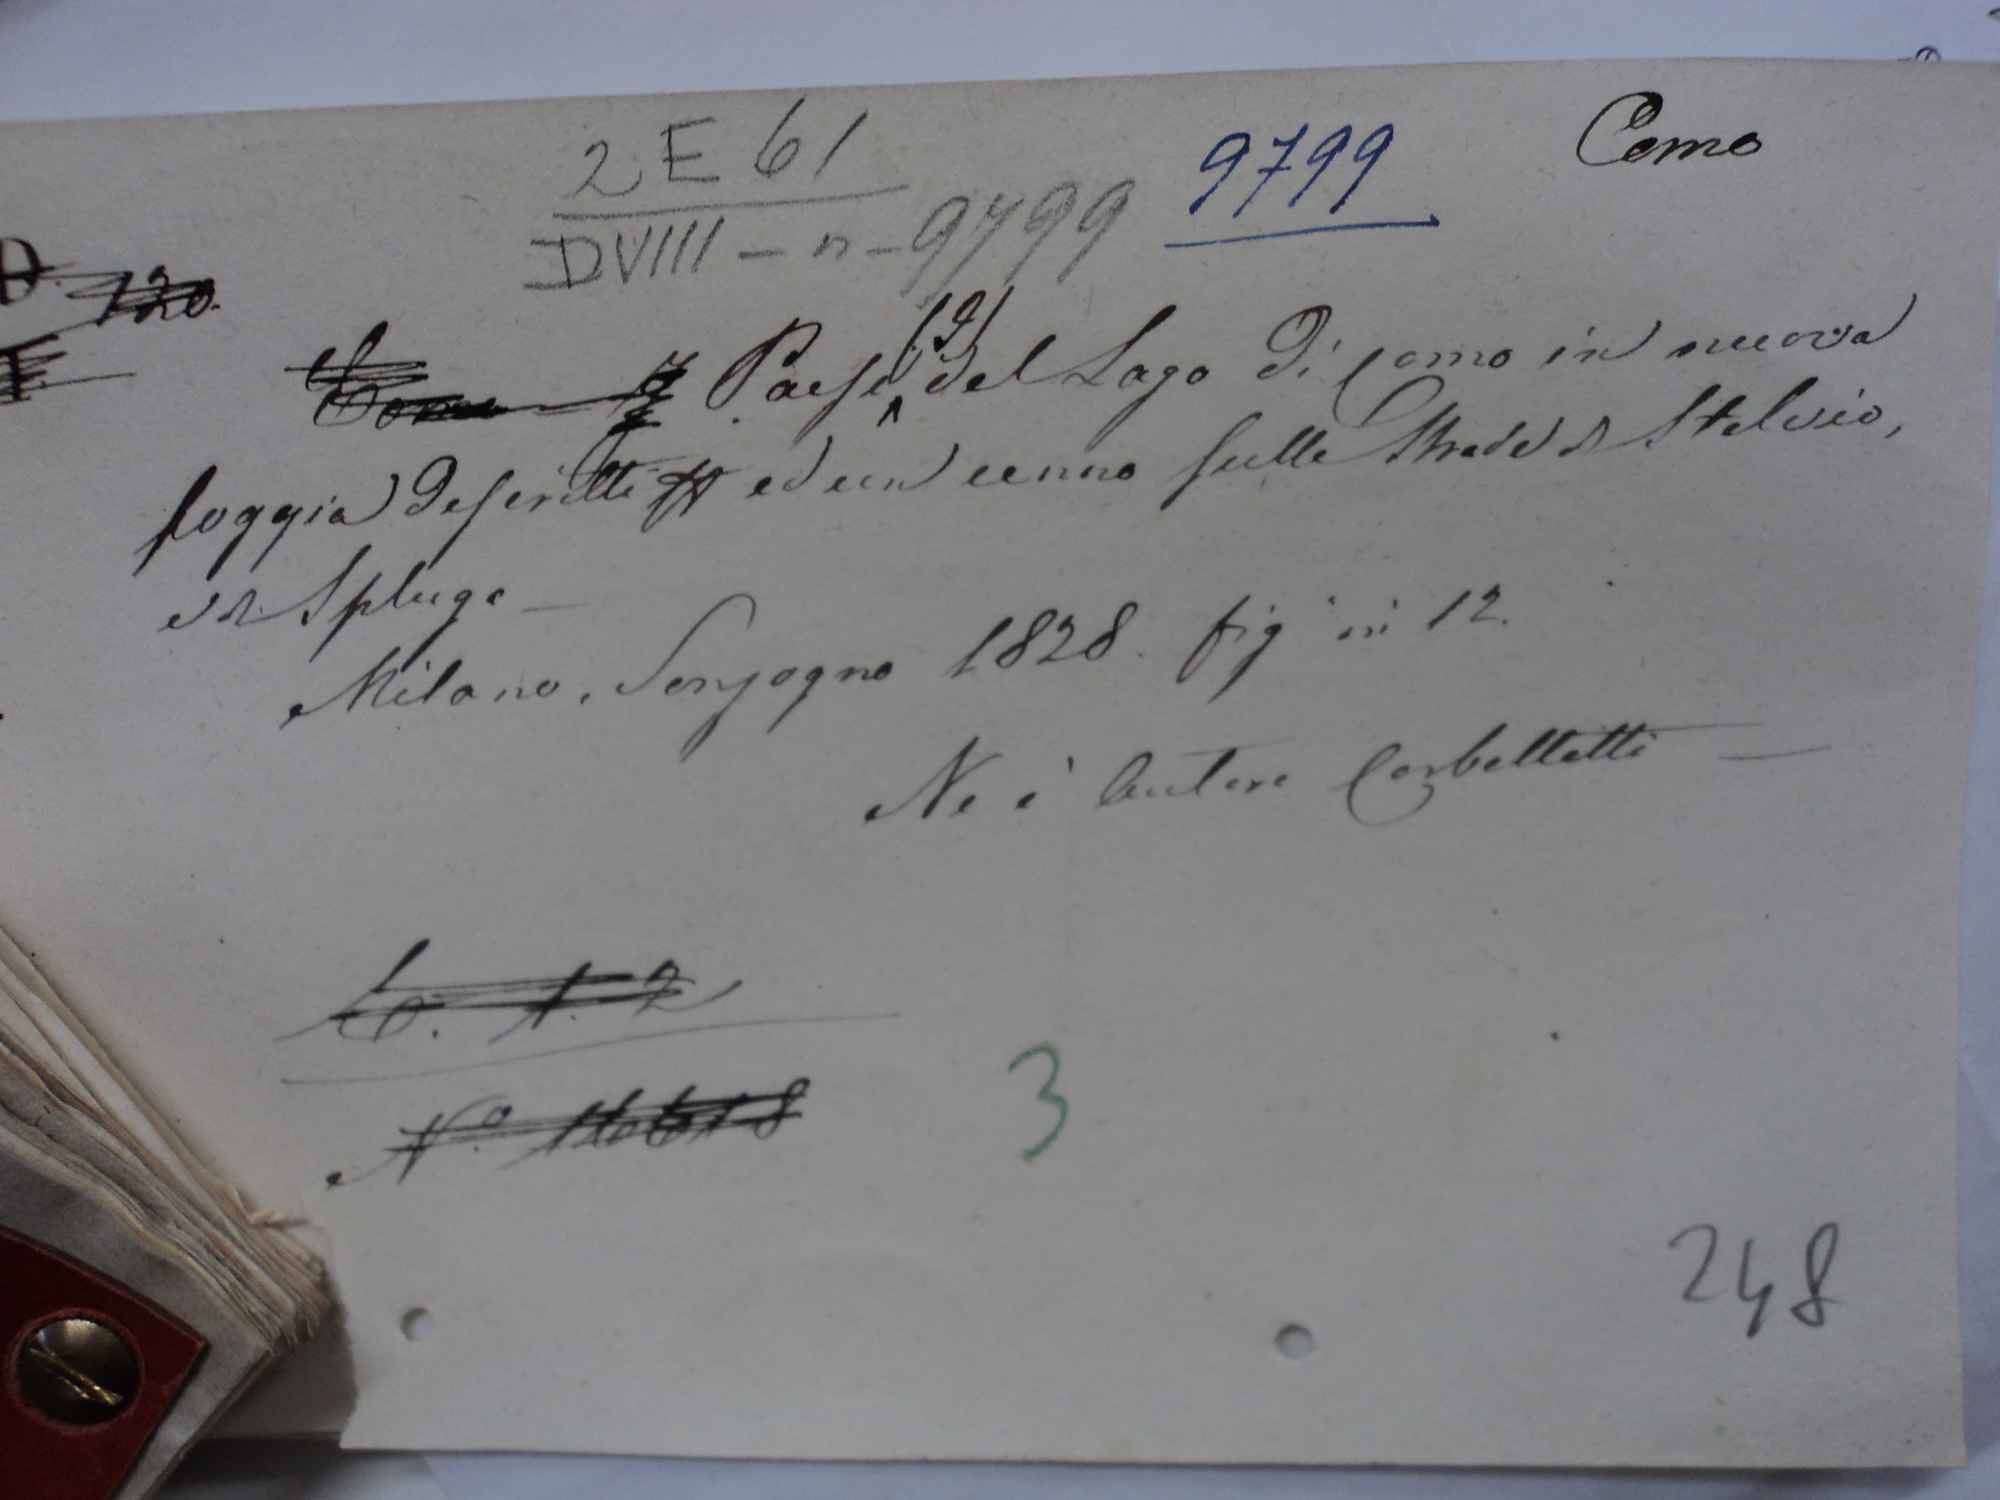 Como
2 E 61
DVIII - n - 9799
9799
D. 120.
T.
Como Paesi (I) del Lago di Como in nuova
foggia descritti ed un cenno sulle Strade di Stelvio,
e di Spluga —
Milano, Sonzogno 1828. fig in 12.
Ne è autore Corbelletti —
1. 2
N.° 16618
3
248